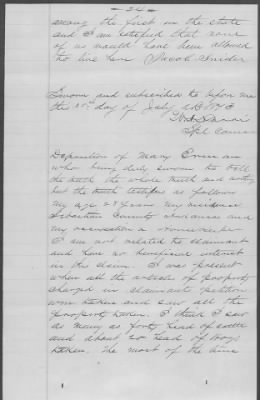 - 24 -
among the first in the state
and I am satisfied that none
of us would have been allowed
to live here Jacob Snider
Sworn and subscribed to before me
the 25th day of July AD 1873
Spl Comr
Deposition of Mary
who being duly sworn to tell
the truth the whole truth and nothing
but the truth testifies as follows
my age 28 years my residence
Sebastian County Arkansas and
my occupation a Housekeeper
I am not related to claimant
and have no beneficial interest
in the claim. I was present
when all the articles of property
charged in claimants petition
were taken and saw all the
property taken. I think I saw
as many as forty head of cattle
and about 20 head of hogs
taken. The most of the time